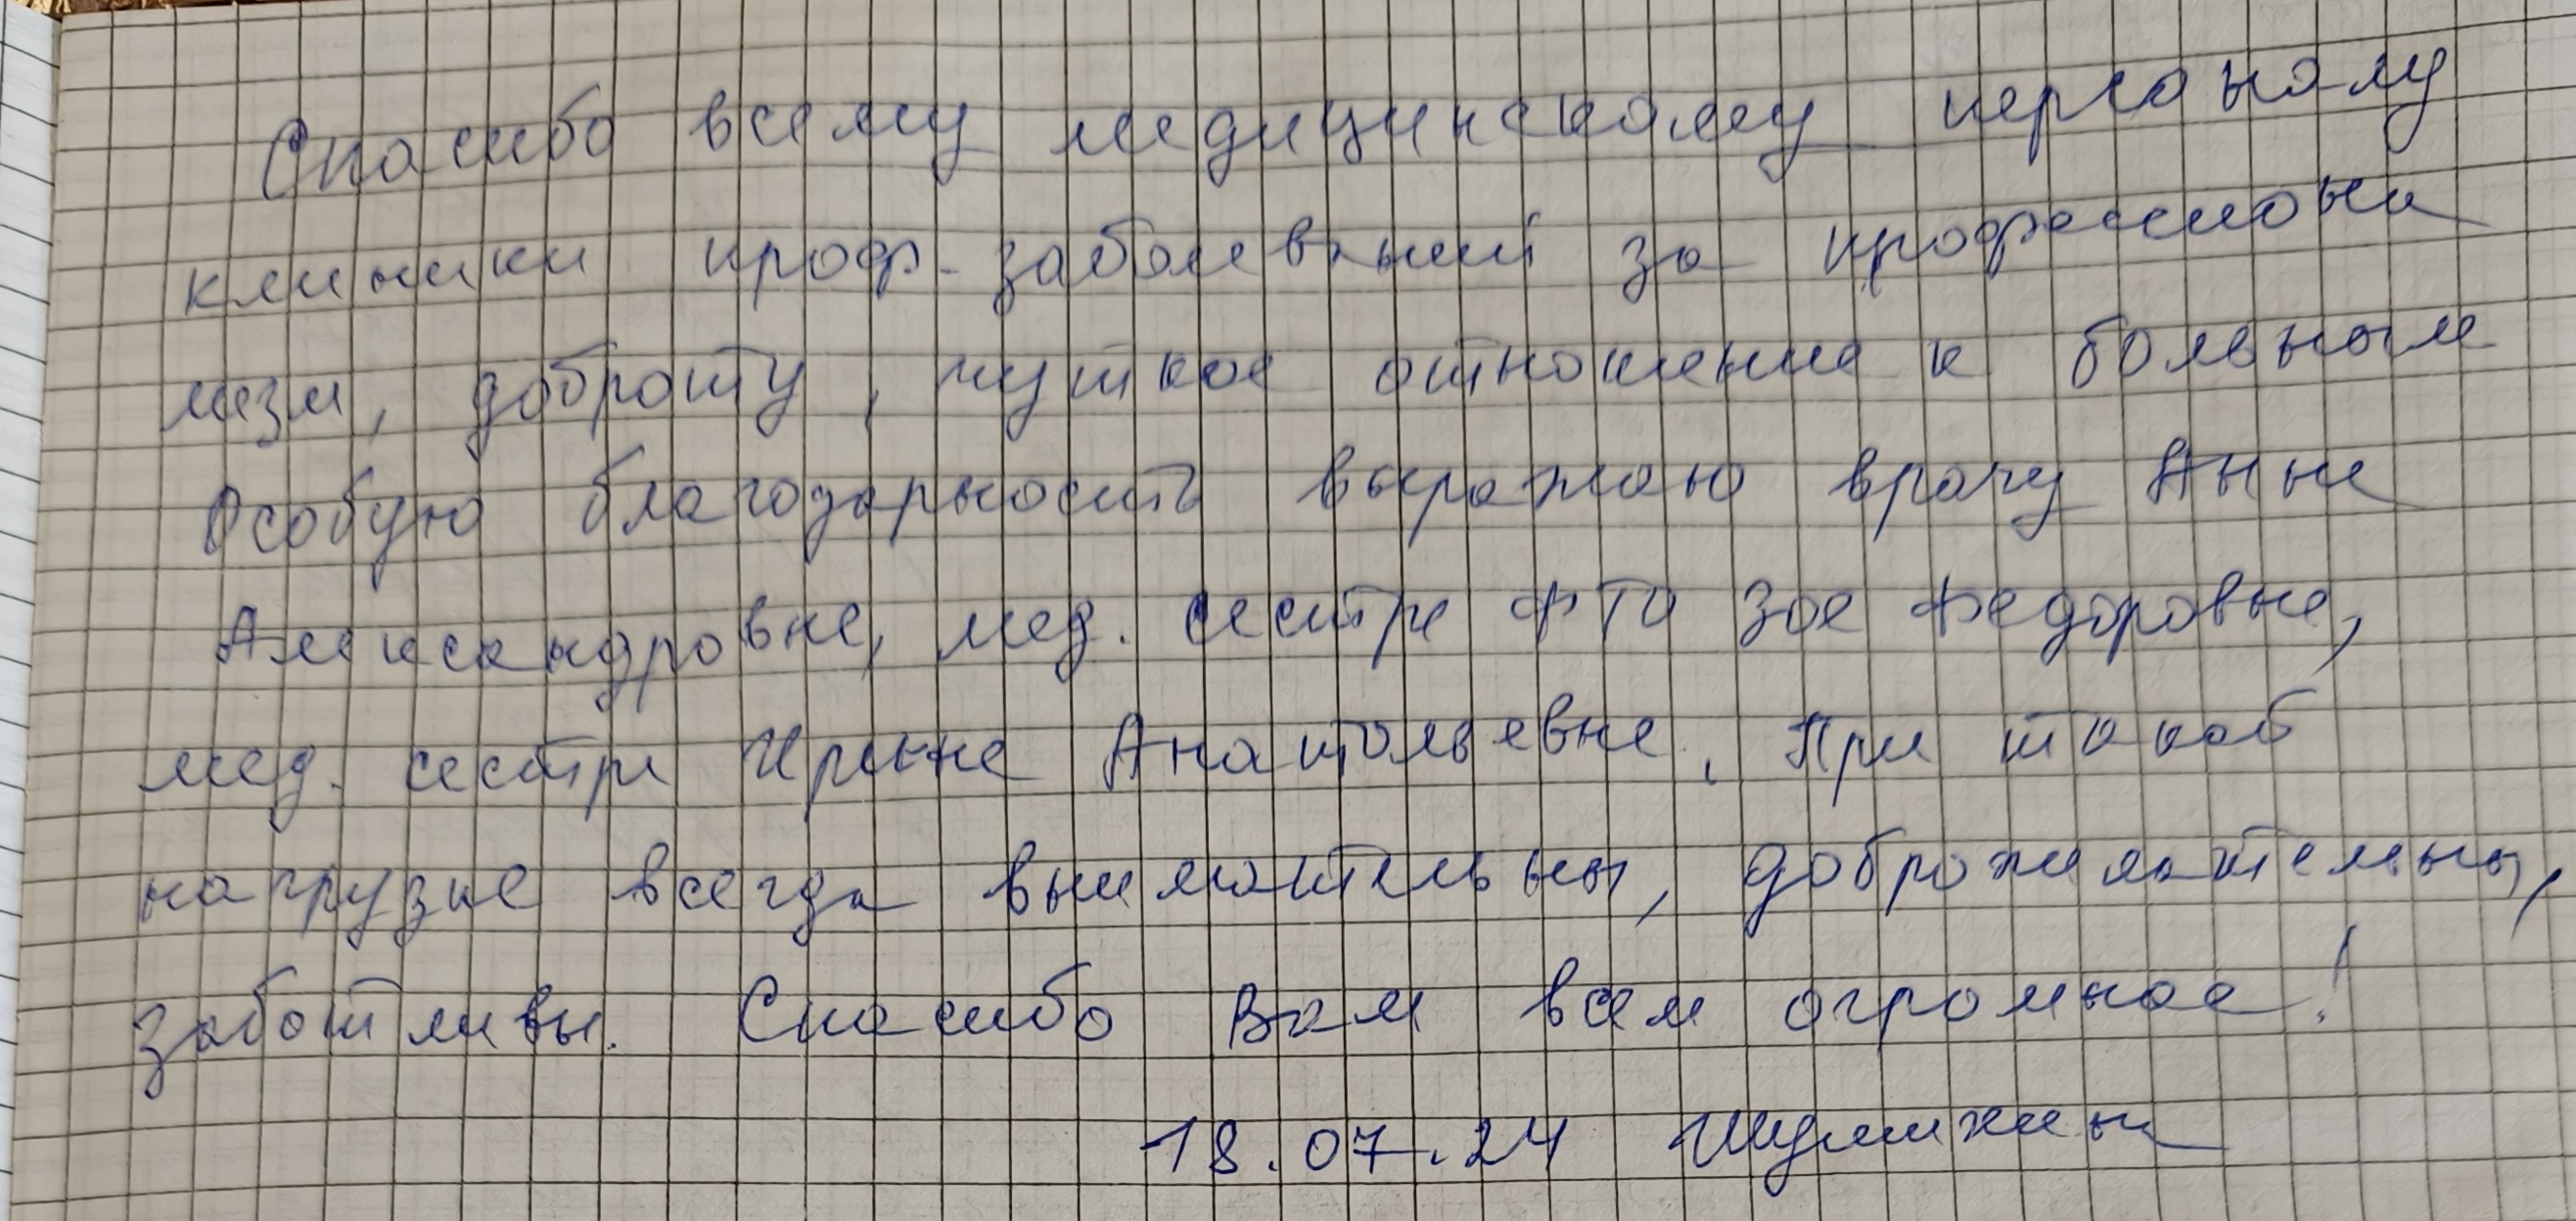 Спасибо всему медицинскому персоналу
клиники проф-заболеваний за профессиона
лизм, доброту, чуткое отношение к больным
Особую благодарность выражаю врачу Анне
Александровне, мед. сестре ФТО Зое Федоровне,
мед. сестре Ирине Анатольевне. При такой
нагрузке всегда внимательны, доброжелательны,
заботливы. Спасибо Вам всем огромное!
18.07.24